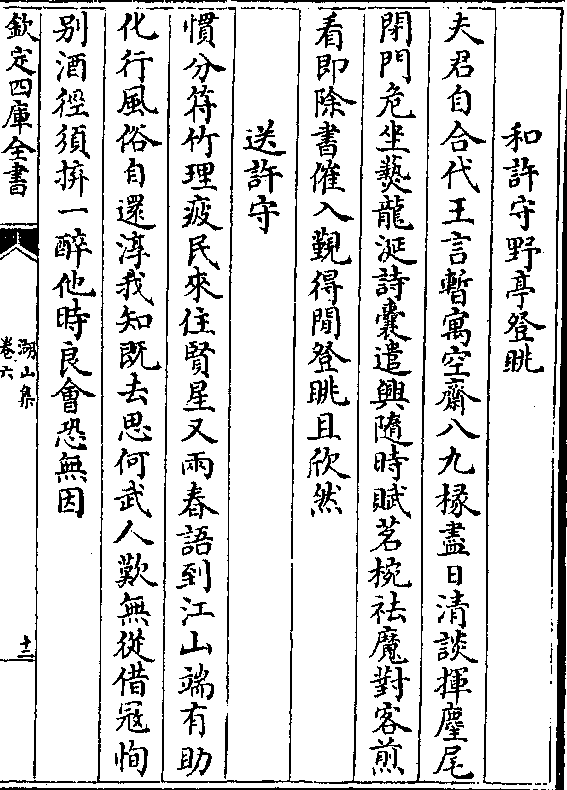 和許守野亭登眺
夫君自合代王言暫寓空齋八九椽盡日清談揮麈尾
閉門危坐爇龍涎詩囊遣興隨時賦茗椀祛魔對客煎
看即除書催入覲得閒登眺且欣然
送許守
慣分符竹理疲民來往賢星又兩春語到江山端有助
化行風俗自還淳我知既去思何武人歎無從借冦恂
别酒徑須摒一醉他時良會恐無因
欽定四庫全書
湖山集
卷六
十二